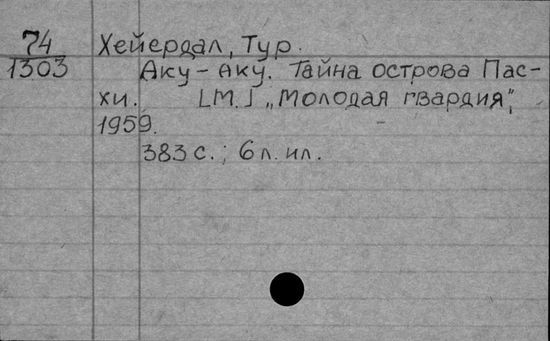 74 Хейердал, Тур.
1303 Аку-Аку. Тайна острова Пас-
хи. [М.] „Молодая гвардия",
1959.
383 с.; 6 л. ил.